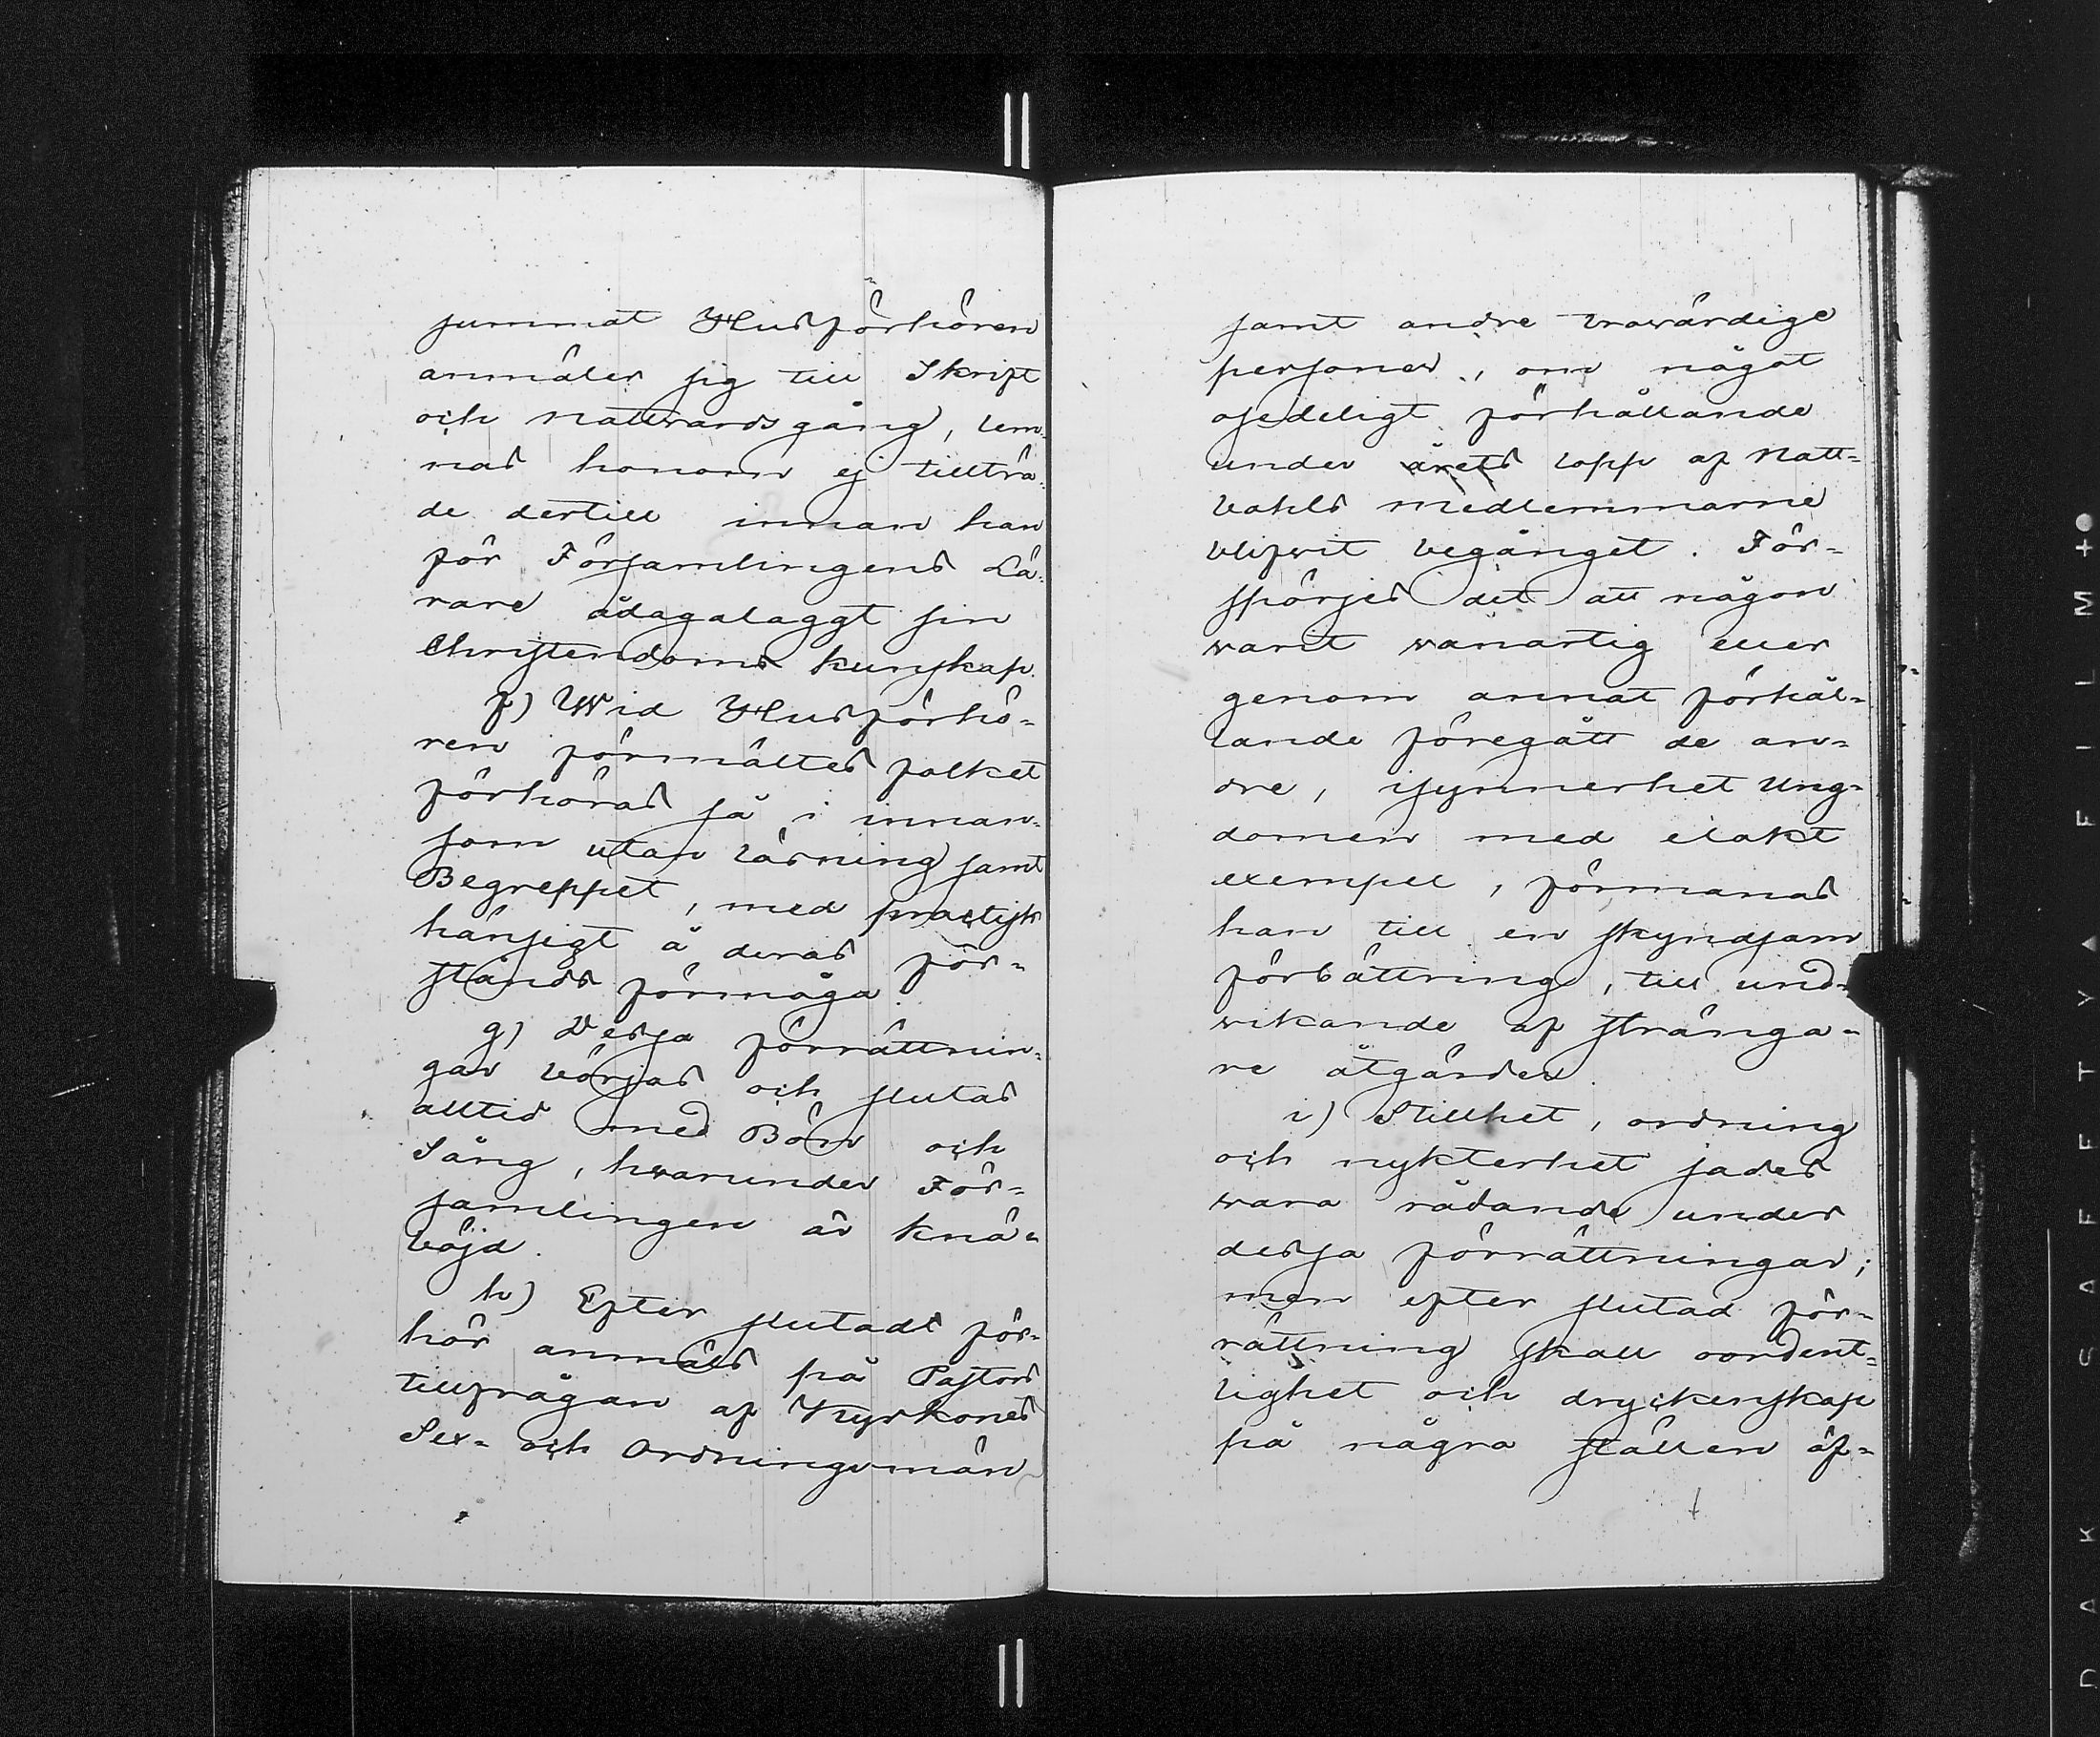 summat Husförhören
anmäler sig till Skrift
och Nattvardsgång, lem-
nas honom ej tillträ-
de dertill innan han
för Församlingens Lä-
rare ådagalaggt sin
Christendoms kunskap.
f) Wid Husförhö-
ren förmältes folket
förhöras så i innan-
som utan läsning samt
Begreppet, med practisk
hänsigt å deras för-
stånds förmåga.
g) Dessa förrättnin-
gar börjas och slutas
alltid med Bön och
Sång, hwarunder För-
samlingen är knä-
böjd.
h) Efter slutadt för-
hör anmäls på Pastors
tillfrågan af Kyrkones
Sex- och Ordningsmän
samt andre trowärdige
personer, om något
osedeligt förhållande
under årets lopp af Natt-
bahls medlemmarne
blifwit begånget. För-
spörjes det att någon
warit wanartig eller
genom annat förhål-
lande föregått de an-
dre, isynnerhet Ung-
domen med elakt
exempel, förmanas
han till en skyndsam
förbättring, till und-
wikande af stränga-
re åtgärder.
i) Stillhet, ordning
och nykterhet sades
wara rådande under
dessa förrättningar;
men efter slutad för-
rättning skall oordent-
lighet och dryckenskap
på några ställen äf-
DAK SAFETY FILM